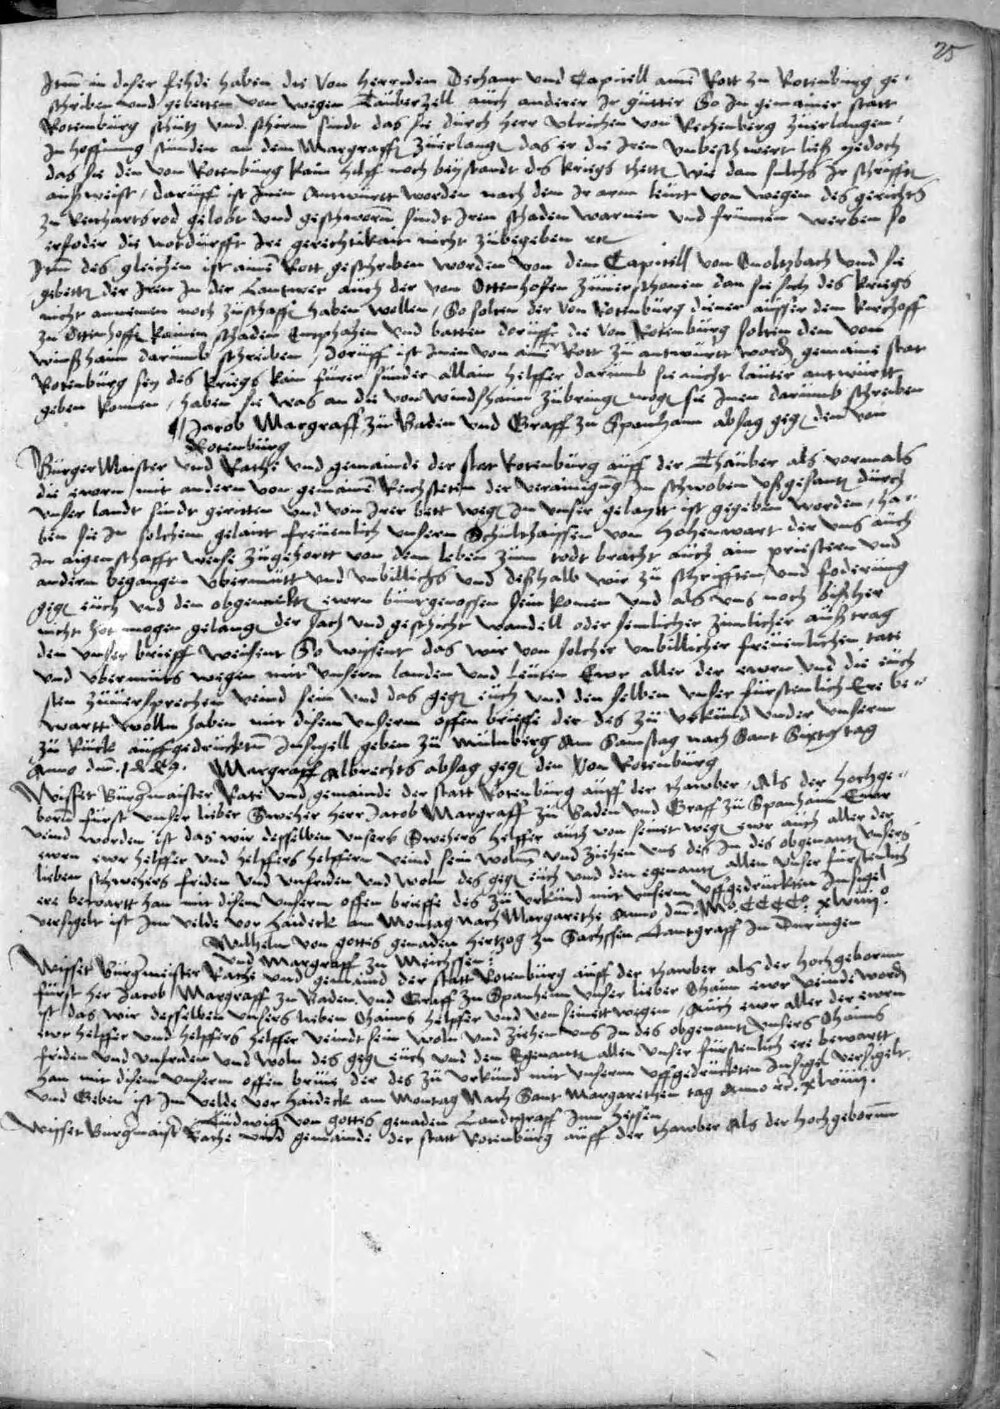 25
Itm̄ in diser fehde haben die von Herrieden Dechant und Capitell aim̄ Rott zu Rotenburg ge-
schriben und gebetten von wegen Tauberzell auch anderer Ir gütter So In gemainer statt
Rotenburg schutz und schirm sindt das sie durch herr Ulrichen von Rechenberg zuerlangen
In hoffnung stunden an dem Margraff zuerlang das er die Iren unbeschwert ließ yedoch
das sie den von Rotenburg kain hilff noch beystandt des kriegs thett wie dan solchs Ir schrifft
außweist / daruff ist Inen Antwurtt worden nach dem Ir arm leut von wegen des gerichts
zu Reichartsrod gelobt und geschworn sindt Iren schaden warnen und frummen werben so
erfoder die notdurfft Ire gerechtikait nicht zubegeben
Itm̄ des gleichen ist aim̄ Rott geschriben worden von dem Capitell von Onoltzbach und sie
gebett der Iren In der Lantwer auch der von Ottenhofen zuuerschonen dan sie sich des kriegs
nicht annemen noch zuschaff haben wollen / So solten der von Rotenburg diener ausser dem kirchoff
zu Ottenhoff kainen schaden Empfahen und batten doruff die von Rotenburg solten dem von
Winßhaim darumb schreiben / doruff ist Inen von aim̄ Rott zu antwurtt word gemaine stat
Rotenburg sey des kriegs kain furer sunder allain helffer darumb sie nicht lauter antwurtt
geben konnen / haben sie was an die von Windshaim zubring mog sie Inen darumb schreiben
Jacob Margraff zu Baden und Graff zu Spanhaim absag geg den von
Rotenburg
Burger Maister und Rathe und gemainde der stat Rotenburg auff der Thauber als vormals
die ewern mit andern von gemainē Reichstetten der verainigung In schwoben ußgesant durch
unser landt sindt geritten und von Irer bett weg In unser gelaytt ist gegeben worden / ha-
ben sie In solchem gelaitt freuenlich unserm Schulthaissen von Hohenwart der uns auch
In aigenschafft weise zugehortt von dem leben zum todt bracht auch ain priestern und
andern begangen ubermutt und unbillichs und deßhalb wir zu schrifften und foderung
geg euch und den obgemelt ewrn buntgenossen sein komen und als uns noch bißher
nicht hot mogen gelang der sach und geschicht wandell oder semlicher zimlicher außtrag
den unser brieff weisent So wissent das wir von solcher unbillicher freuenlichen tate
und ubermuts wegen mit unsern landen und leuten Ewr aller der ewern und die euch
sten zuuersprechen veind sein und das geg euch und den selben unser furstenlich Ere be-
wartt wolln haben mit disem unserm offen brieffe der des zu urkund under unserm
zu Ruck auffgedrucktem Insigell geben zu Mulnberg Am Samstag nach Sant Sixts tag
Anno dm̄
Margraff Albrechts absag geg den von Rotenburg
Wisset Burgmaister Rate und gemainde der statt Rotenburg auff der thawber / Als der hochge-
born furst unser lieber Sweher herr Jacob Margraff zu Baden und Graff zu Spanhaim Ewr
veind worden ist das wir desselben unsers Swehers helffer auch von seinet weg ewr auch aller der
ewrn ewr helffer und helffers helffern veind sein wolnn und ziehen uns des In des obgenant unsers
lieben schwehers friden und unfriden und woln des geg euch und den egenant allen unser furstenlich
ere bewartt han mit disem unserm offen brieffe des zu urkund mit unserm uffgedruckten Insigel
versigelt ist Im velde vor Haideck am Montag nach Margarethe Anno dm̄ Mº. CCCCº. xlviiijº.
Wilhelm von gottes genaden Hertzog zu Sachssen Lantgraff In Duringen
und Margraff zu Meichssen
Wisset Burgmeister Rathe und gemaind der statt Rotenburg auff der thawber als der hochgeborn
furst her Jacob Margraff zu Baden und Graff zu Spanheim unser lieber Ohaim ewr veinde word
ist das wir desselben unsers lieben Ohaims helffer und von seinettwegen / Auch ewr aller der ewrn
ewr helffer und helffers helffer veindt sein woln und ziehen uns In des obgenant unsers Ohaims
friden und unfriden und woln des geg euch und den Egenant allen unser furstenlich ere bewartt
han mit disem unserm offen briue der des zu urkund mit unserm uffgedruckten Insigel versigelt
und Geben ist Im velde vor Haideck am Montag Nach Sant Margarethen tag Anno xlviiij.
Ludwig von gottes genaden Landtgraff Inn Hessen
Wisset Burgmaist Rathe und gemainde der statt Rotenburg auff der thawber Als der hochgeborn